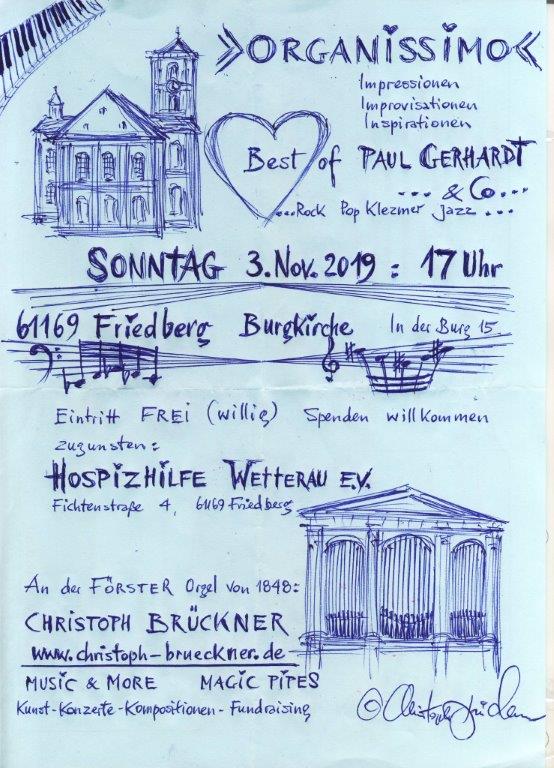 »ORGANISSIMO«
Impressionen
Improvisationen
Inspirationen
Best of PAUL GERHARDT
... & Co...
...Rock Pop Klezmer Jazz ...
SONNTAG 3. Nov. 2019 : 17 Uhr
61169 Friedberg Burgkirche In der Burg 15
Eintritt FREI (willig) Spenden willkommen
zugunsten:
HOSPIZHILFE WETTERAU E.V.
Fichtenstraße 4, 61169 Friedberg
An der FÖRSTER Orgel von 1848:
CHRISTOPH BRÜCKNER
www.christoph-brueckner.de
MUSIC & MORE MAGIC PIPES
Kunst-Konzerte-Kompositionen-Fundraising
© Christoph